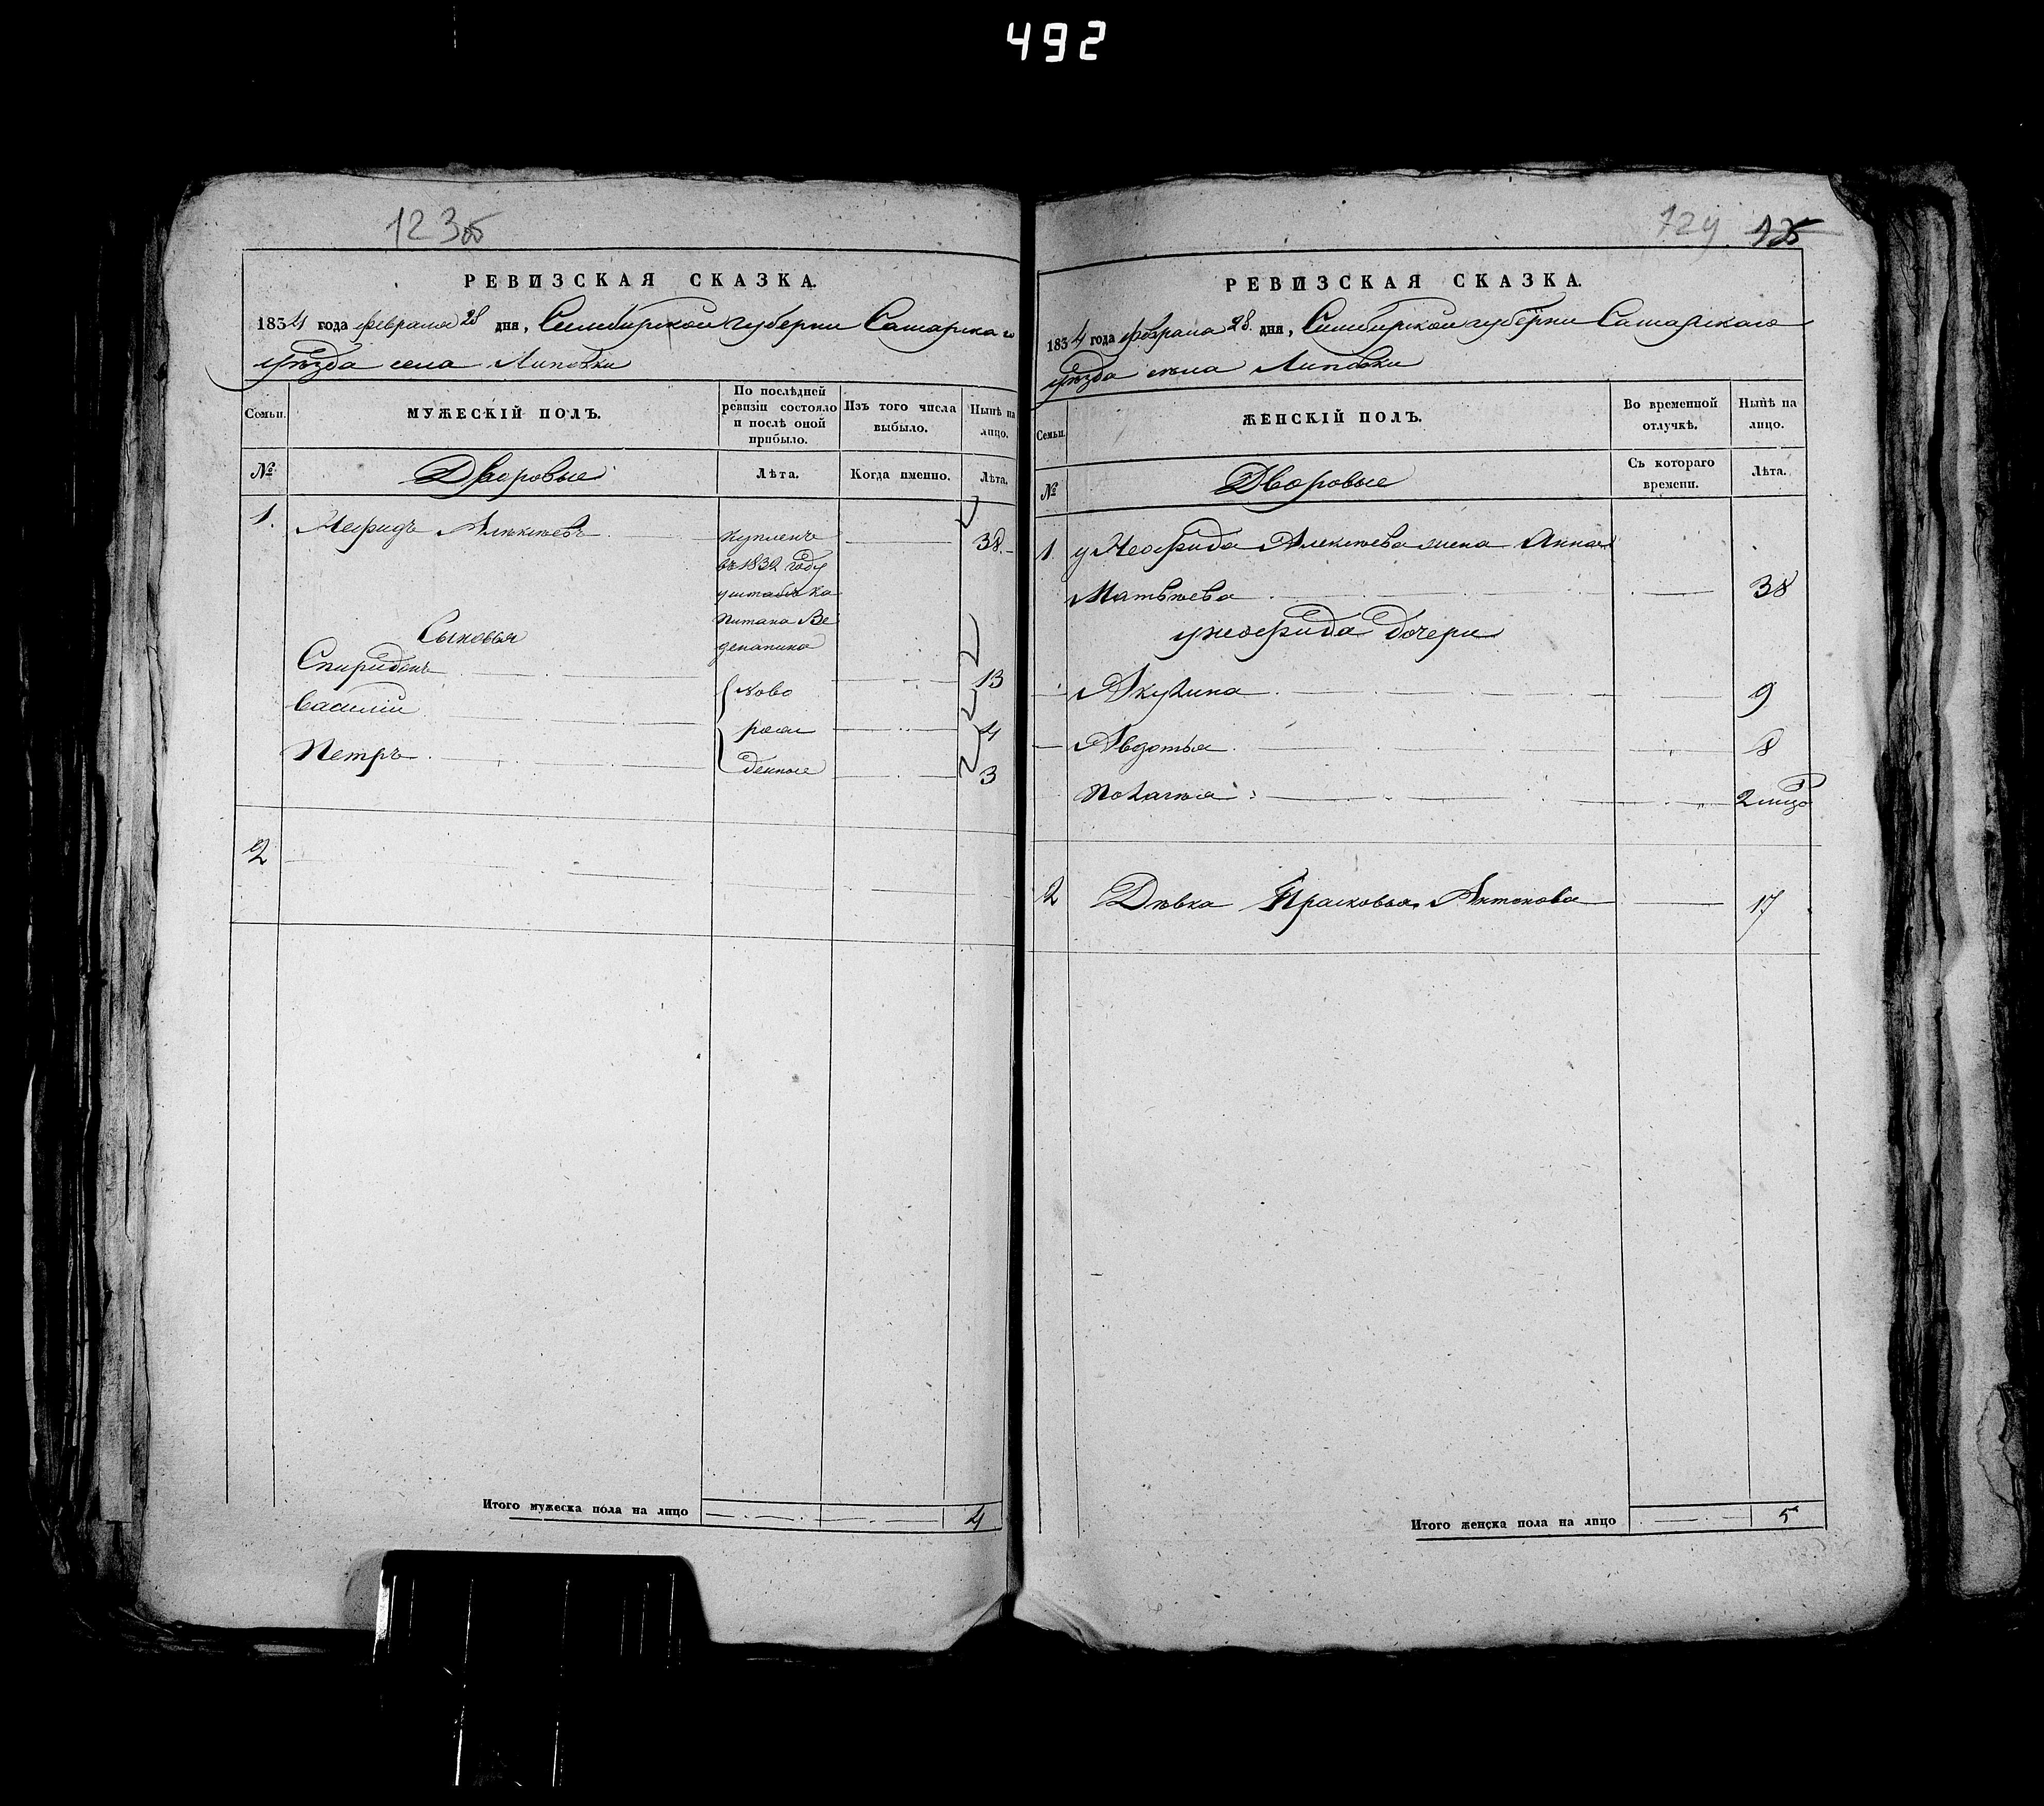 492
123
РЕВИЗСКАЯ СКАЗКА.
1834 года февраля 28 дня, Симбирской губерни Самарскаго
уѣзда села Липовки
Семьи.
МУЖЕСКІЙ ПОЛЪ.
По послѣдней
ревизіи состояло
и послѣ оной
прибыло.
Изъ того числа
выбыло.
Нынѣ на
лицо.
№
Дворовые
Лѣта.
Когда именно.
Лѣта.
1. Неофидъ Алексѣевъ купленъ 38
въ 1832 году
у штабсъ ка
питана Ве
денапина
Сыновья
Спиридонъ 13
Василій ново 4
рож
Петръ денные 3
2
Итого мужеска пола на лицо 4
124 125
РЕВИЗСКАЯ СКАЗКА.
1834 года февраля 28 дня, Симбирской губерни Самарскаго
уѣзда села Липовки
Семьи.
ЖЕНСКІЙ ПОЛЪ.
Во временной
отлучкѣ.
Нынѣ на
лицо.
№
Дворовые
Съ котораго
времени.
Лѣта.
1 у Неофида Алексѣева жена Анна
Матвѣева 38
у неофида дочери
Акулина 9
Авдотья 8
Пелагѣя 2
2 Дѣвка Прасковья Антонова 17
Итого женска пола на лицо 5